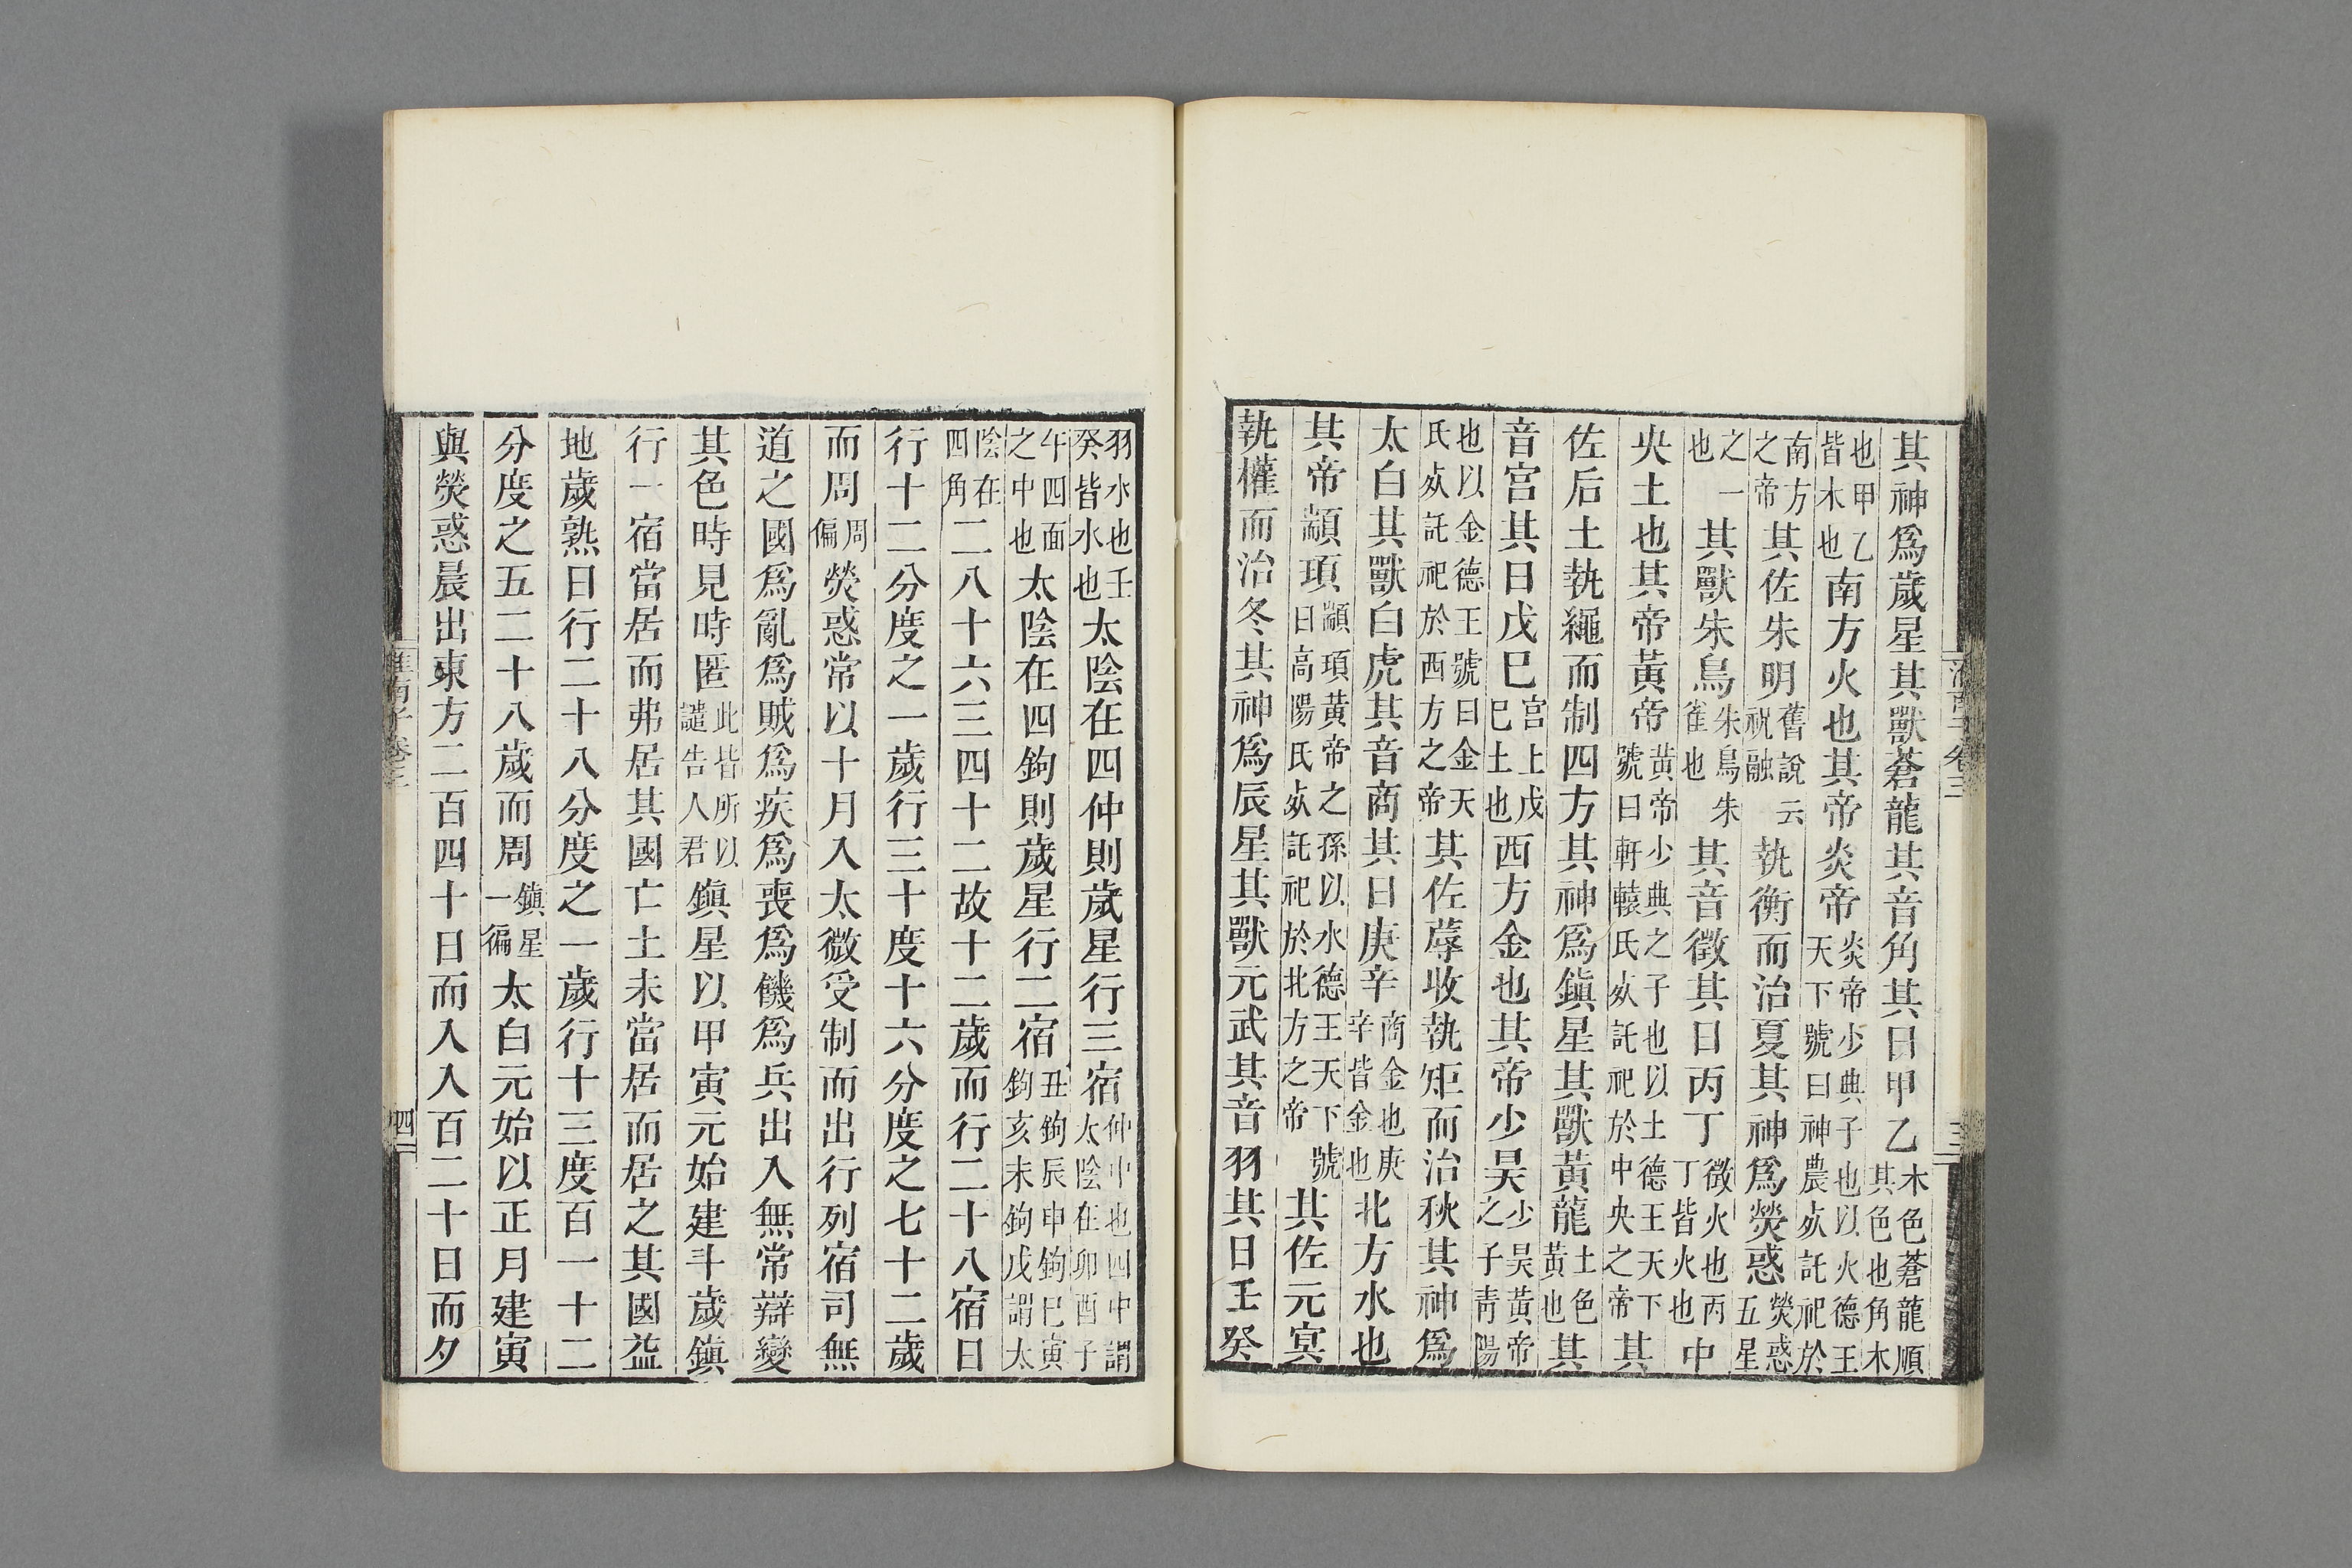 其神爲歲星其獸蒼龍其音角其日甲乙木色蒼龍順其色也角木
也甲乙皆木也南方火也其帝炎帝炎帝少典子也以火德王天下號曰神農死託祀於
南方之帝其佐朱明舊說云祝融執衡而治夏其神爲熒惑熒惑五星
之一也其獸朱鳥朱鳥朱雀也其音徵其日丙丁徵火也丙丁皆火也中
央土也其帝黃帝黃帝少典之子也以土德王天下號曰軒轅氏死託祀於中央之帝其
佐后土執繩而制四方其神爲鎮星其獸黃龍土色黃也其
音宮其日戊巳宮土戊巳土也西方金也其帝少昊少昊黃帝之子青陽
也以金德王號曰金天氏死託祀於西方之帝其佐蓐收執矩而治秋其神爲
太白其獸白虎其音商其日庚辛商金也庚辛皆金也北方水也
其帝顓頊顓頊黃帝之孫以水德王天下號曰高陽氏死託祀於北方之帝其佐元冥
執權而治冬其神爲辰星其獸元武其音羽其日壬癸
羽水也壬癸皆水也太陰在四仲則歲星行三宿仲中也四中謂太陰在卯酉子
午四面之中也太陰在四鉤則歲星行二宿丑鉤辰申鉤巳寅鉤亥未鉤戌謂太
陰在四角二八十六三四十二故十二歲而行二十八宿日
行十二分度之一歲行三十度十六分度之七十二歲
而周周徧熒惑常以十月入太微受制而出行列宿司無
道之國爲亂爲賊爲疾爲喪爲饑爲兵出入無常辯變
其色時見時匿此皆所以譴告人君鎮星以甲寅元始建斗歲鎮
行一宿當居而弗居其國亡土未當居而居之其國益
地歲熟日行二十八分度之一歲行十三度百一十二
分度之五二十八歲而周鎮星一徧太白元始以正月建寅
與熒惑晨出東方二百四十日而入入百二十日而夕
淮南子卷三
四